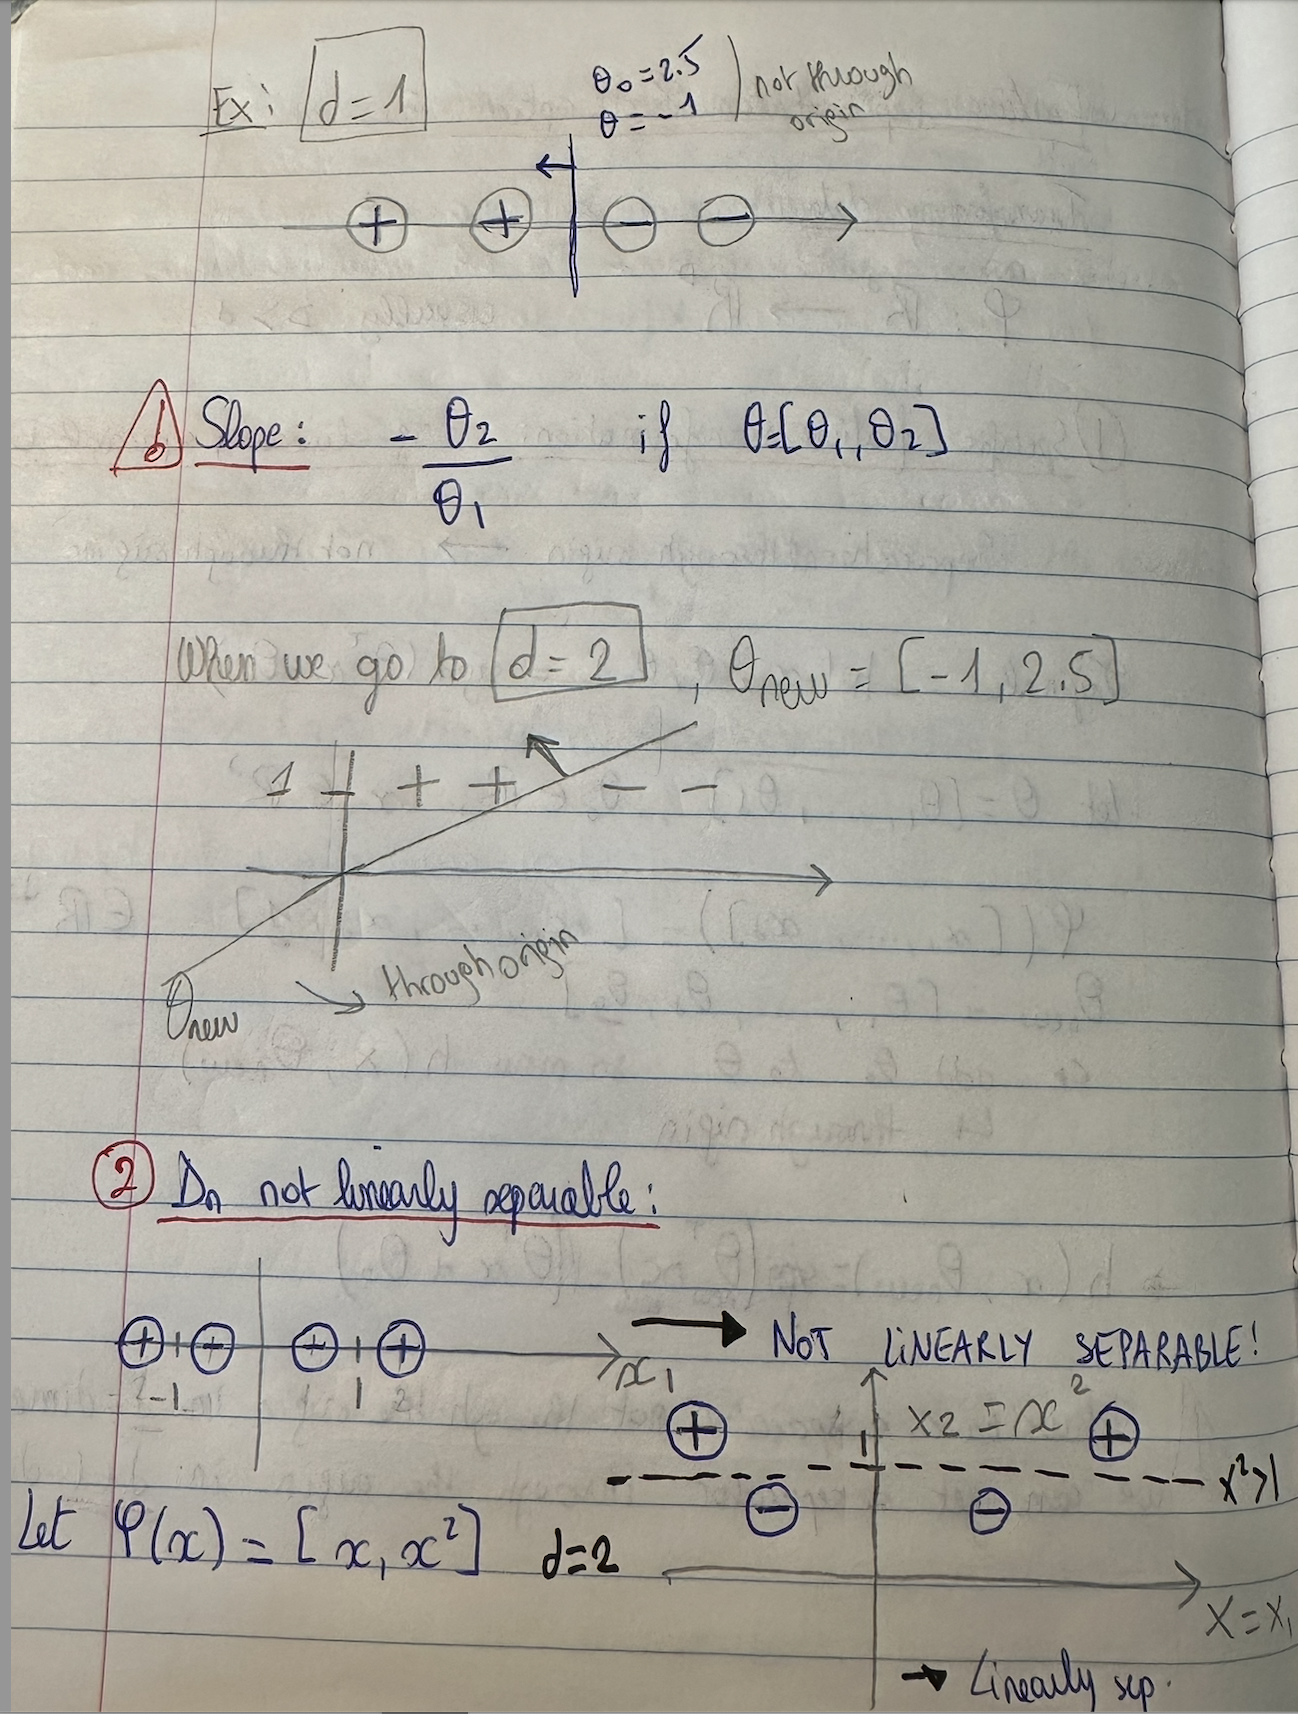 Ex: d=1
θ₀=2.5
θ=-1
not through
origin
+ + - -
Slope: - θ₂/θ₁ if θ=[θ₁,θ₂]
When we go to d=2, θnew = [-1, 2.5]
1 + + - -
through origin
θnew
② Dn not linearly separable:
+ + + +
-1 1 2
x₁
→ NOT LINEARLY SEPARABLE!
x2 = x²
+ 1 +
x²>1
- -
Let φ(x) = [x, x²] d=2
x=x₁
→ Linearly sep.